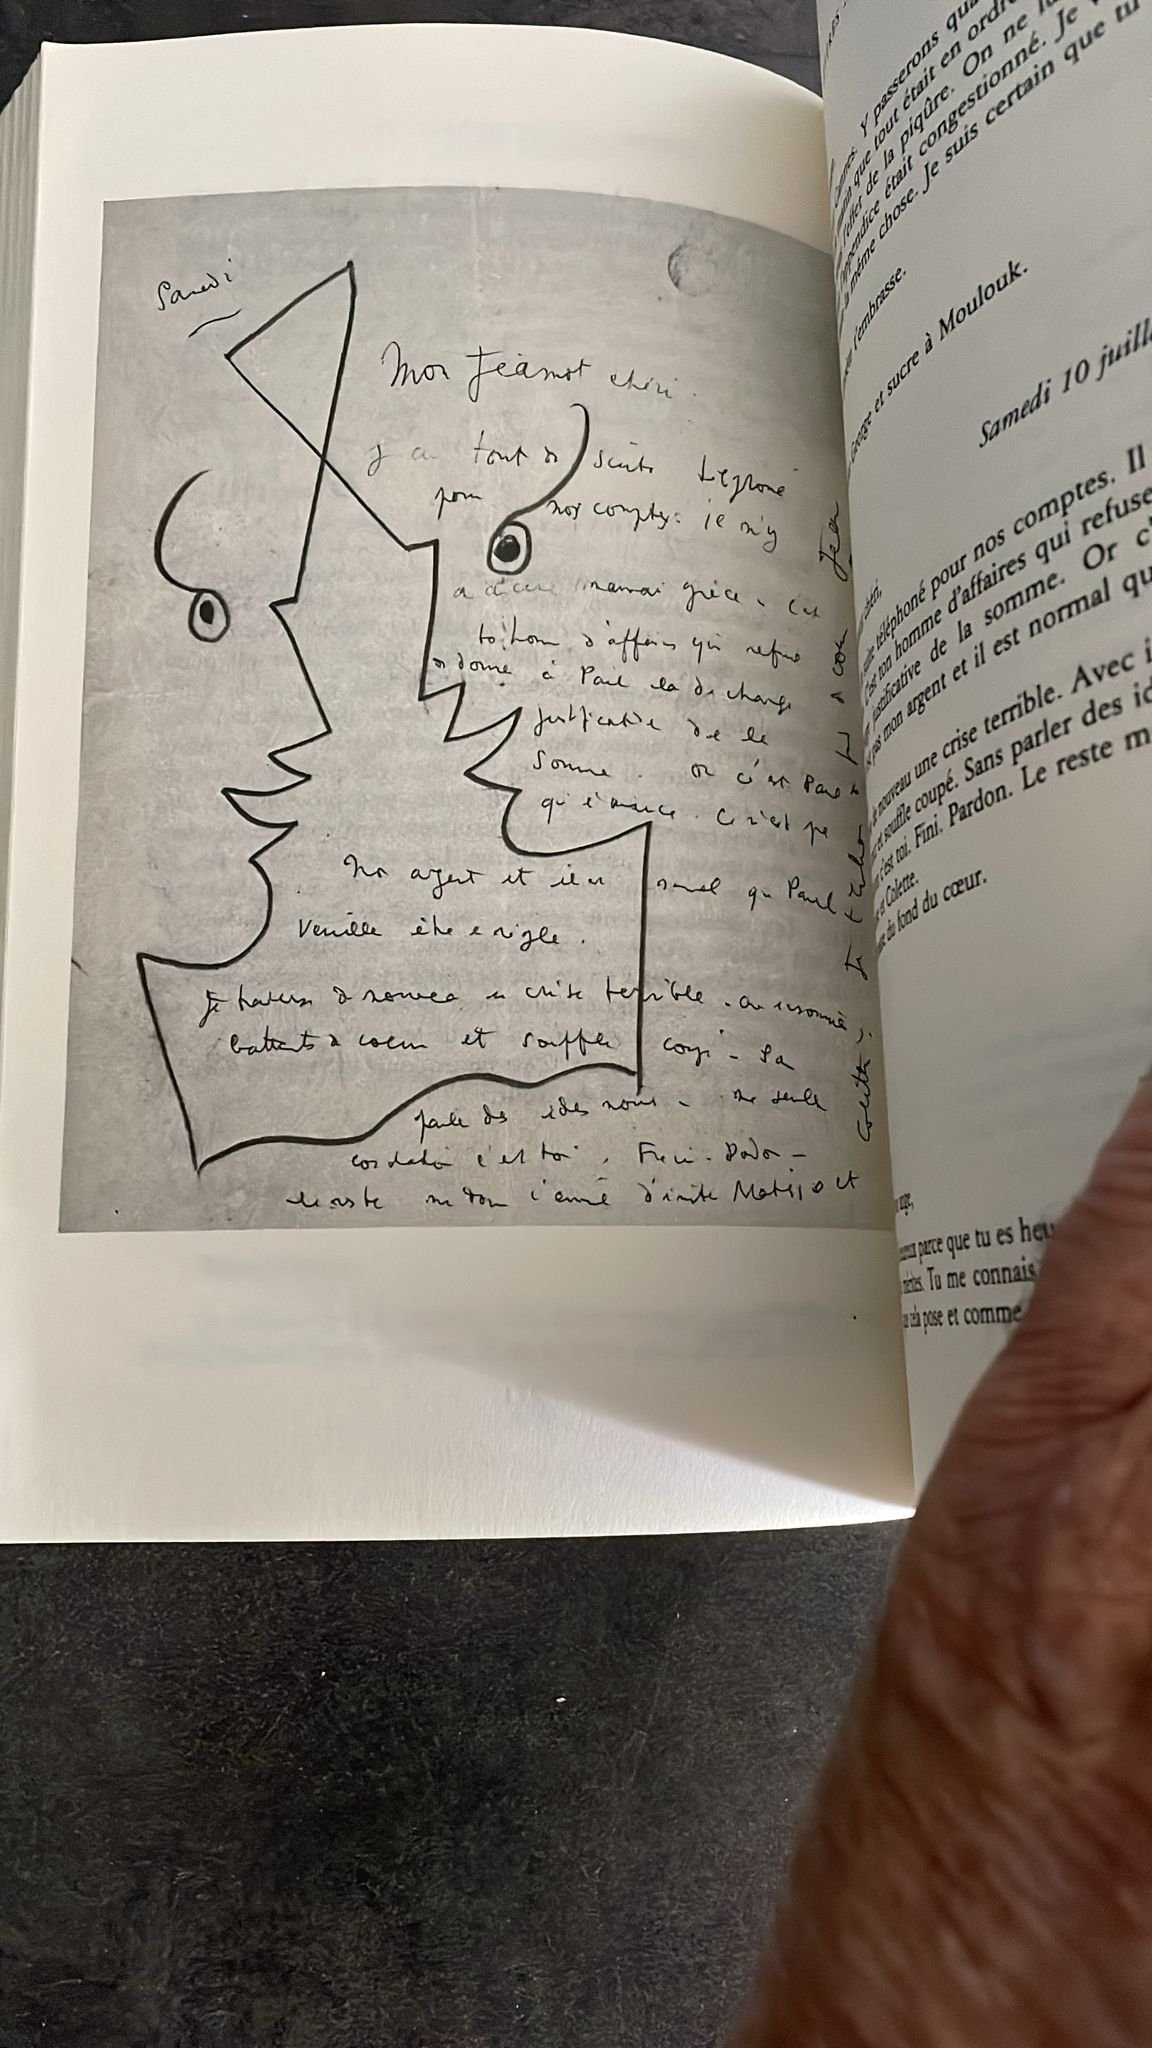 Samedi
Mon Jeannot chéri
J'ai tout de suite téléphoné
pour nos comptes. il n'y
a aucune mauvaise grâce. C'est
ton homme d'affaires qui refuse
de donner à Paul la décharge
justificative de la
somme. or c'est Paul
qui avance. Ce n'est pas
mon argent et il est normal que Paul
veuille être en règle.
Je traverse de nouveau une crise terrible. avec insomnies,
battements de coeur et souffle coupé. Sans
parler des idées noires. ma seule
consolation c'est toi. Fini. Pardon.
le reste me donne l'envie d'imiter Matisse et
Colette. Je t'embrasse du fond du coeur
Jean
Y passerons
que tout était en ordre
l'effet de la piqûre. On ne
appendice était congestionné. Je
la même chose. Je suis certain que tu
t'embrasse.
George et sucre à Moulouk.
Samedi 10 juillet
chéri,
téléphoné pour nos comptes. Il
C'est ton homme d'affaires qui refuse
justificative de la somme. Or c'
pas mon argent et il est normal qu
de nouveau une crise terrible. Avec i
et souffle coupé. Sans parler des id
c'est toi. Fini. Pardon. Le reste m
et Colette.
du fond du cœur.
ange,
parce que tu es heu
mérites. Tu me connais
cela pose et comme